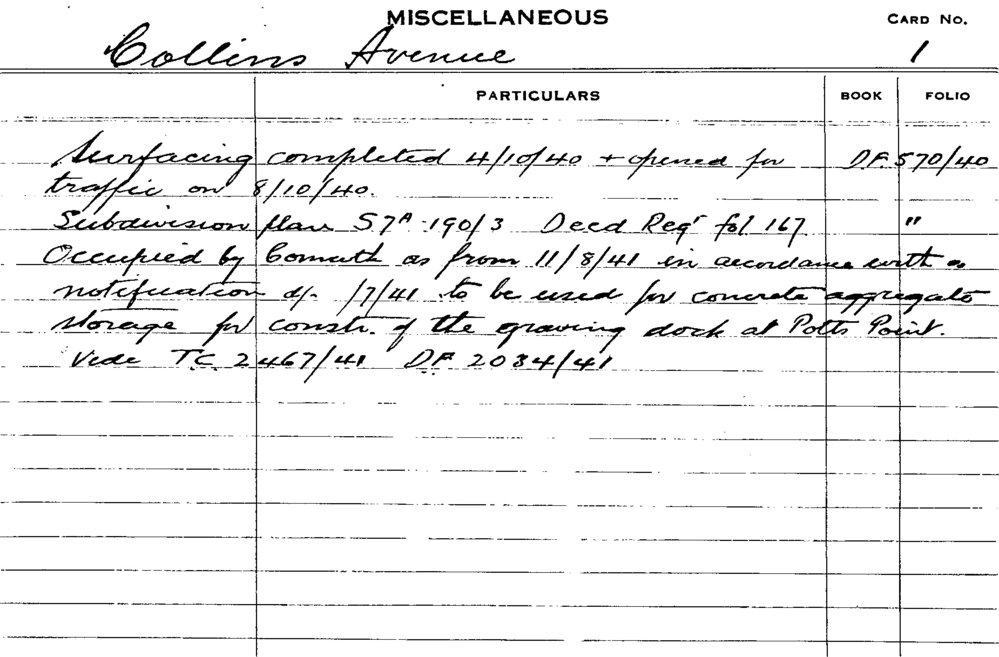 MISCELLANEOUS
CARD NO.
Collins Avenue
1
PARTICULARS BOOK FOLIO
Surfacing completed 4/10/40 + opened for D.F. 570/40
traffic on 8/10/40.
Subdivision plan S7A-190/3 Deed Regr fol 167 "
Occupied by Comwth as from 11/8/41 in accordance with a
notification d/- /7/41 to be used for concrete aggregate
storage for constr. of the graving dock at Potts Point.
Vide T.C. 2467/41 D.F. 2034/41